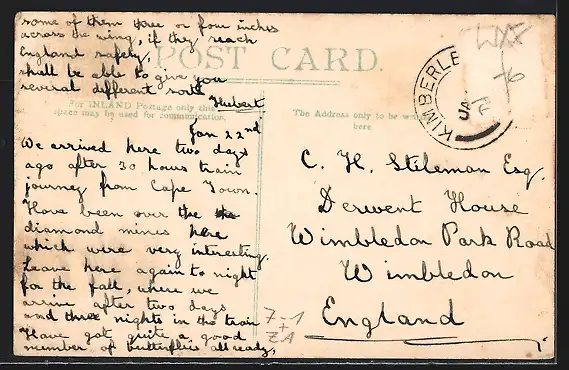 some of them three or four inches
across the wing, if they reach
England safely,
shall be able to give you
several different sorts
Hubert
POST CARD.
For INLAND Postage only this
space may be used for communication.
The Address only to be written
here
KIMBERLE
Jan 22nd
We arrived here two days
ago after 30 hours train
journey from Cape Town.
Have been over the the
diamond mines here
which were very interesting.
Leave here again to night
for the fall, where we
arrive after two days
and three nights in the train
Have got quite a good
number of butterflies all ready,
C. H. Stileman Esq.
Derwent House
Wimbledon Park Road
Wimbledon
England
7-1
+
ZA